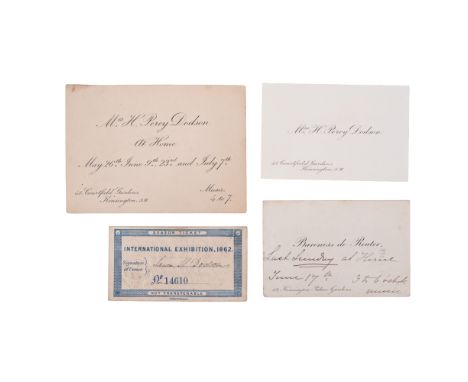 Mrs H. Percy Dodson
At Home
May 26th June 9th 23rd and July 7th
Courtfield Gardens
Kensington, S.W.
Music
4 to 7.
Mrs H. Percy Dodson.
Courtfield Gardens
Kensington, S.W.
SEASON TICKET
INTERNATIONAL EXHIBITION, 1862.
Signature
of Owner
No 14610
NOT TRANSFERABLE
Baroness de Reuter,
Last Sunday at Home
June 17th
3 to 6 o'clock
Kensington Palace Gardens
music